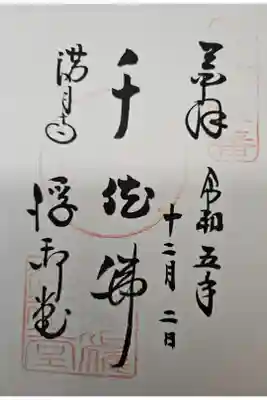 奉拝
令和五年
十二月二日
千体佛
満月寺
浮御堂